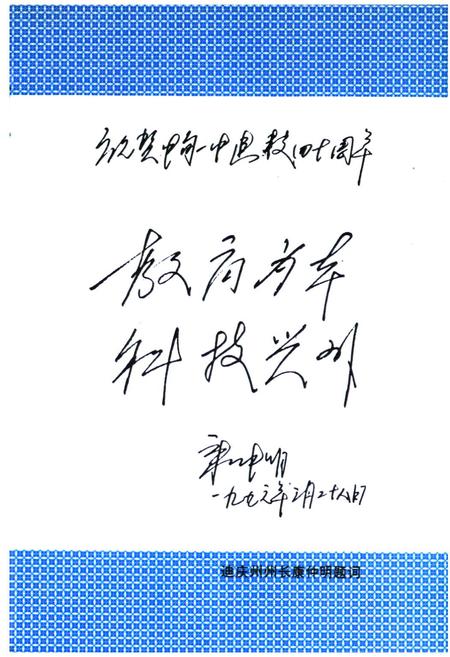 祝贺中甸一中建校四十周年
教育为本
科技兴州
康仲明
一九九六年月二十八日
迪庆州州长康仲明题词